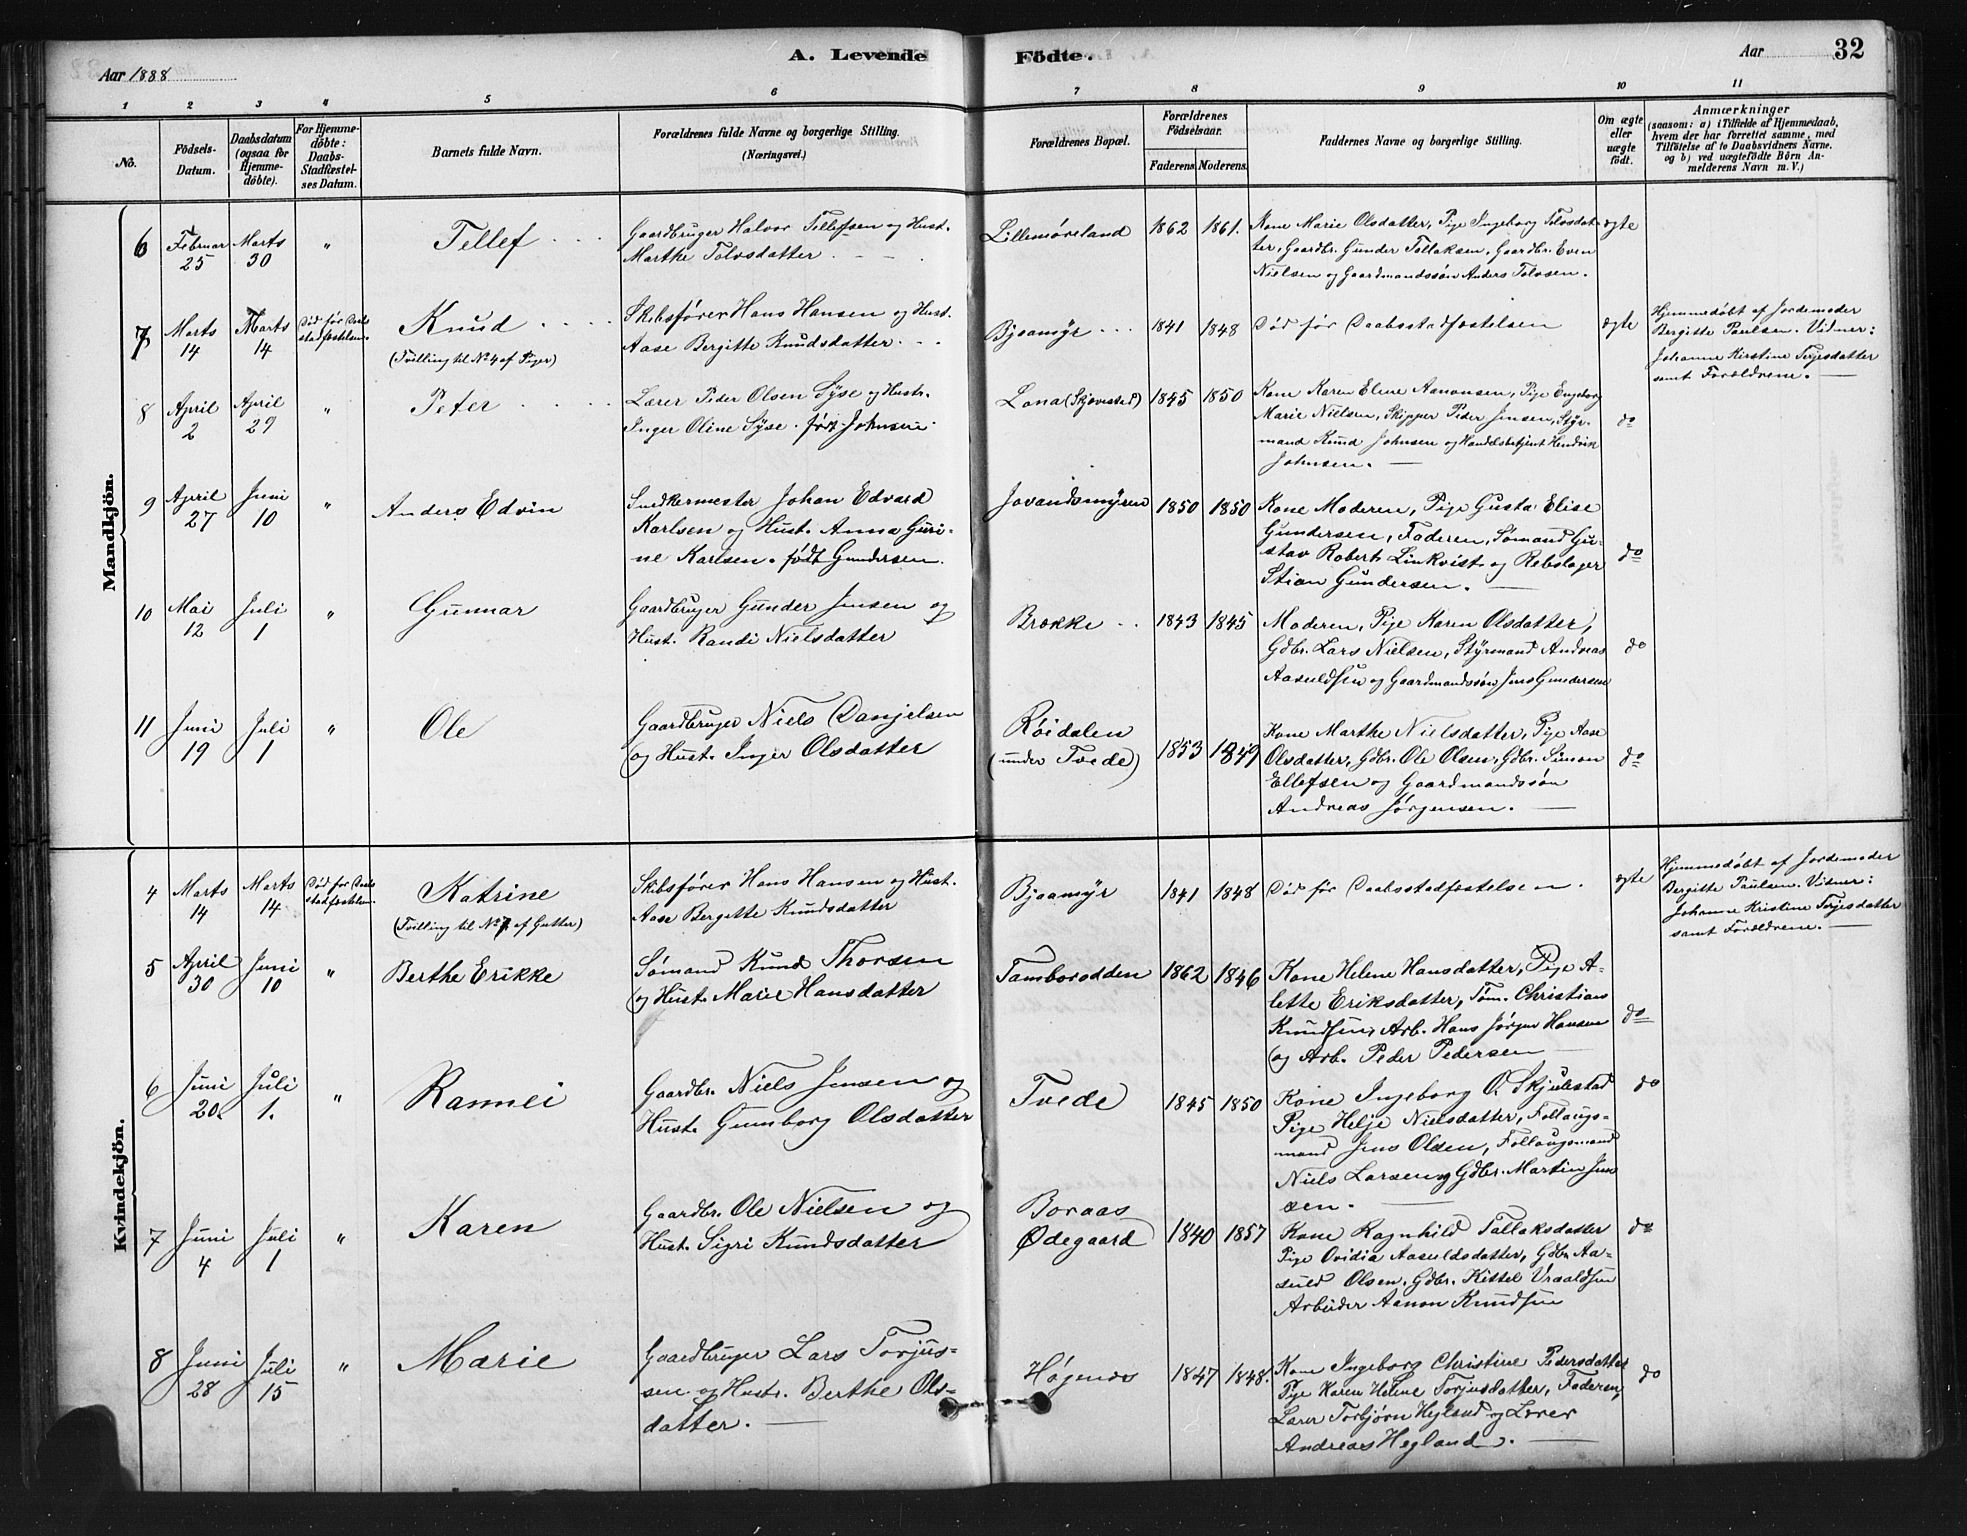 A. Levende Födte.
Aar 1888
Aar 32
1 2 3 4 5 6 7 8 9 10 11
No.
Födsels-Datum.
Daabsdatum (ogsaa for Hjemmedöbte).
For Hjemmedöbte: Daabs-Stadfæstelses Datum.
Barnets fulde Navn.
Forældrenes fulde Navne og borgerlige Stilling.
(Næringsvei.)
Forældrenes Bopæl.
Forældrenes Födselsaar.
Faderens. Moderens.
Faddernes Navne og borgerlige Stilling.
Om ægte eller uægte födt.
Anmærkninger
(saasom: a) i Tilfælde af Hjemmedaab, hvem der har forrettet samme, med Tilföielse af to Daabsvidners Navne, og b) ved uægtefödte Börn Anmelderens Navn m. V.)
Mandkjön.
6 Februar 25 Marts 30 " Tellef
Gaardbruger Halvor Tellefsen og Hust.
Marthe Tolvsdatter
Lillemøreland 1862 1861.
Kone Marie Olsdatter, Pige Ingeborg Tolvsdat-
ter, Gaardbr. Gunder Tallaksen, Gaardbr. Even
Nielsen og Gaardmandssøn Anders Tolvsen.
ægte
7 Marts 14 Marts 14 Død før Daabsstadfæstelsen
Knud
(Tvilling til No 4 af Piger)
Skibsfører Hans Hansen og Hust.
Aase Bergitte Knudsdatter
Bjaamyr 1841 1848
Død før Daabsstadfæstelsen
ægte
Hjemmedøbt af Jordemoder
Bergitte Paulsen. Vidner:
Johanne Kirstine Terjesdatter
samt Forældrene.
8 April 2 April 29 " Peter
Lærer Peder Olsen Syse og Hustr.
Inger Oline Syse født Johnsen
Lona (Skjævested) 1845 1850
Kone Karen Eline Aanonsen, Pige Engeborg
Marie Nielsen, Skipper Peder Jensen, Styr-
mand Knud Johnsen og Handelsbetjent Hendrik
Johnsen.
do
9 April 27 Juni 10 " Anders Edvin
Snedkermester Johan Edvard
Karlsen og Hust. Anna Guri-
ne Karlsen. født Gundersen.
Jovandsmyren 1850 1850
Kone Moderen, Pige Gusta Elise
Gundersen, Faderen, Sømand Gu-
stav Robert Linkvist og Rebslager
Stian Gundersen.
do
10 Mai 12 Juli 1 " Gunnar
Gaardbruger Gunder Jensen og
Hust. Randi Nielsdatter
Brække 1843 1845
Moderen, Pige Karen Olsdatter,
Gdbr. Lars Nielsen, Styrmand Andreas
Aasuldsen og Gaardmandssøn Jens Gundersen
do
11 Juni 19 Juli 1 " Ole
Gaardbruger Niels Danjelsen
og Hust. Inger Olsdatter
Røidalen
(under Tvede) 1853 1849
Kone Marthe Nielsdatter, Pige Aase
Olsdatter, Gdbr. Ole Olsen, Gdbr. Simon
Ellefsen og Gaardmandssøn
Andreas Jørgensen.
do
Kvindekjön.
4 Marts 14 Marts 14 Død før Daabsstadfæstelsen
Katrine
(Tvilling til No 7 af Gutter)
Skibsfører Hans Hansen og Hust.
Aase Bergitte Knudsdatter
Bjaamyr 1841 1848
Død før Daabsstadfæstelsen.
ægte
Hjemmedøbt af Jordemoder
Bergitte Paulsen. Vidner:
Johanne Kristine Terjesdatter
samt Forældrene.
5 April 30 Juni 10 " Berthe Erikke
Sømand Knud Thorsen
og Hust. Marie Hansdatter
Tamborodden 1862 1846
Kone Helene Hansdatter, Pige A-
lette Eriksdatter, Tøm. Christians
Knudsen, Arb. Hans Jørgen Hansen
og Arb. Peder Pedersen
do
6 Juni 20. Juli 1. " Rannei
Gaardbr. Niels Jensen og
Hust. Gunborg Olsdatter
Tvede 1845 1850
Kone Ingeborg O. Skjulestad
Pige Helje Nielsdatter, Follaugs-
mand Jens Olsen, Follaugsmand
Niels Larsen og Gdbr. Martin Jen
sen.
do
7 Juni 4 Juli 1 " Karen
Gaardbr. Ole Nielsen og
Hust. Sigri Knudsdatter
Boraas
Ødegaard 1840 1857
Kone Ragnhild Tallaksdatter
Pige Ovidia Aasuldsdatter, Gdbr. Aa-
suld Olsen, Gdbr. Kittel Vraaldsen
Arbeider Aanon Knudsen
do
8 Juni 28 Juli 15 " Marie
Gaardbruger Lars Torjus-
sen og Hustr. Berthe Ols-
datter.
Høgenes 1847 1848.
Kone Ingeborg Christine Pedersdatter
Pige Karen Helene Torjusdatter, Faderen,
Lærer Torbjørn Hegland og Lærer
Andreas Hegland.
do